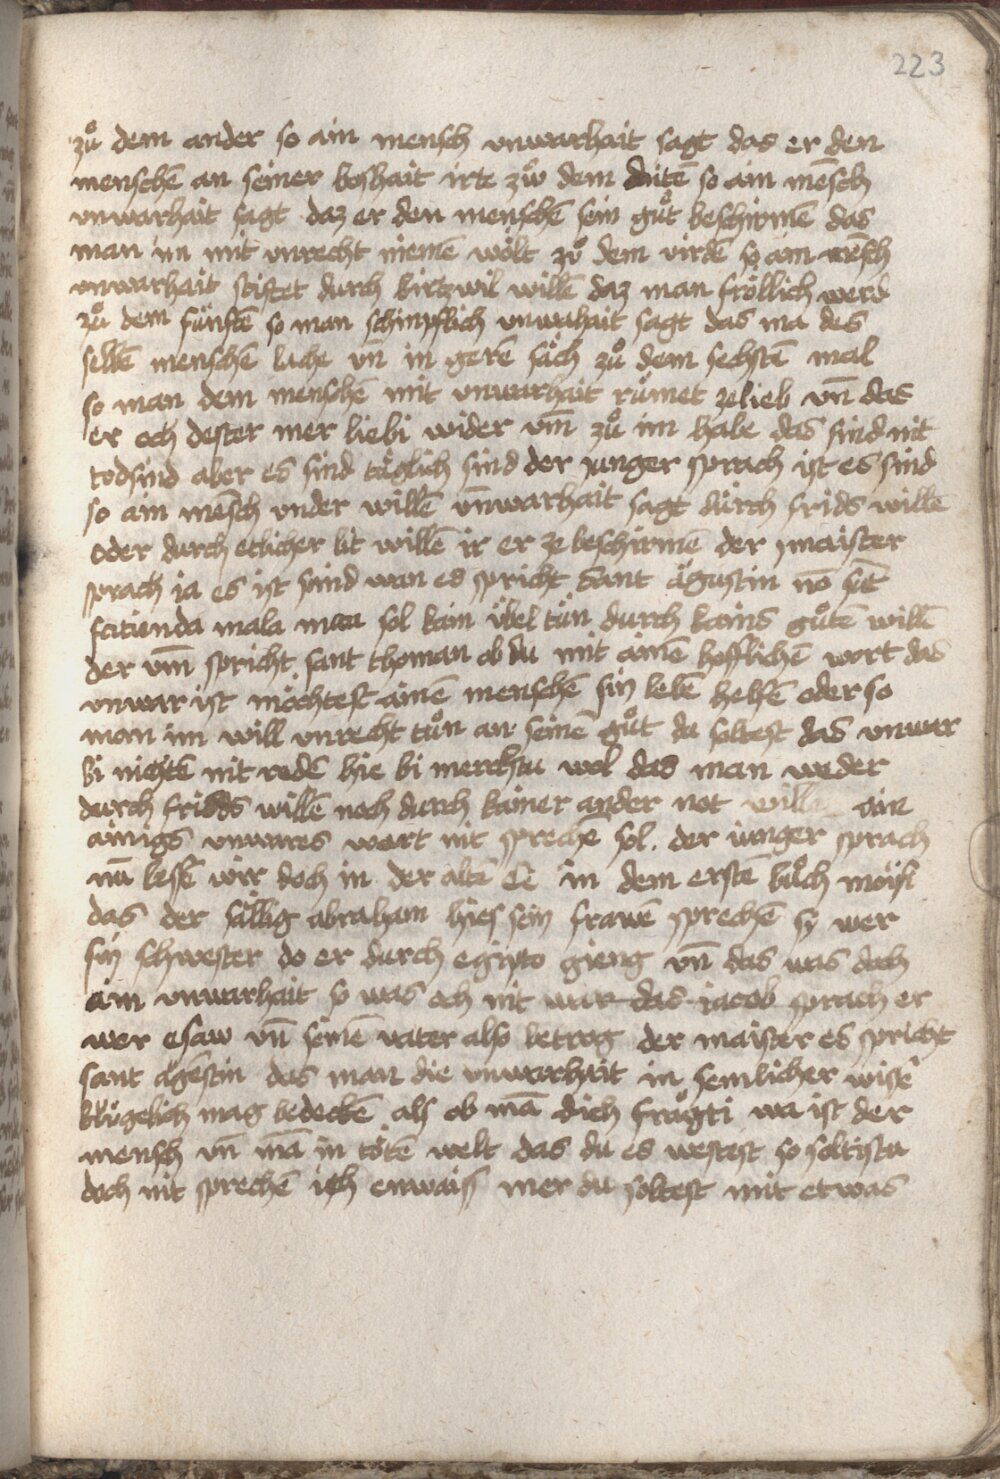 223
zů dem ander so ain mensch vnwarhait sagt das er den
menschē an seiner boshait irte zůw dem driten so ain mēsch
vnwarhait sagt daz er den menschē sein gůt beschirmē das
man im mit vnrecht niemē wölt zů dem virdē so ain mēsch
vnwarhait stiftet durch kurtzwil willē daz man fröllich werd
zů dem fünftē so man schimpflich vnwahait sagt das ma des
selbē menschē lache vn̄ in gerē säch zů dem sechstē mal
so man dem menschē mit vnwarhait růmet ze lieb vn̄ das
er och dester mer liebi wider vm̄ zů im habe das sind nit
todsünd aber es sind täglich sünd der junger sprach ist es sünd
so ain mēsch vnder willē vn̄warhait sagt durch frids willē
oder durch etlicher lüt willē ir er ze beschirmē der maister
sprach ja es ist sünd wan es spricht Sant ägustin no sūt
facienda mala man sol kain übel tůn durch kains gůtē willē
der vm̄ spricht sant thoman ob du mit ainē hofflichē wort das
vnwar ist möchtest ainē menschē sin lebē helfē oder so
man im will vnrecht tůn an seinē gůt du soltest das vnwar
bi nichtē nit redē hie bi merckstu wol das man weder
durch frides willē noch durch kainer ander not wille ain
ainigs vnwares wort nit sprechē sol. der iunger sprach
nū lesē wir doch in der altē E in dem erstē bůch moisi
das der sällig abraham hies sein frawē sprechē sy wer
sin schwester do er durch egipto gieng vn̄ das was doch
ain vnwarhait so was och nit war das jacob sprach er
wer esaw vn̄ seinē vater also betrog der maister es spricht
sant ägestin das man die vnwarhait in semlicher wise
klůgelich mag bedeckē als ob mā dich frägti wa ist der
mensch vn̄ mā in tötē welt das du es westest so soltistu
doch nit sprechē ich enwaiss mer du soltest mit etwas